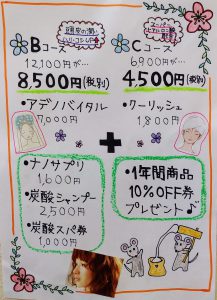 Bコース
12,100円が…
8,500円(税別)
・アデノバイタル
7,000円
Cコース
6900円が…
4,500円(税別)
・クーリッシュ
1,800円
+
・ナノサプリ
1,600円
・炭酸シャンプー
2,500円
・炭酸スパ券
1,000円
・1年間商品
10%OFF券
プレゼント♪